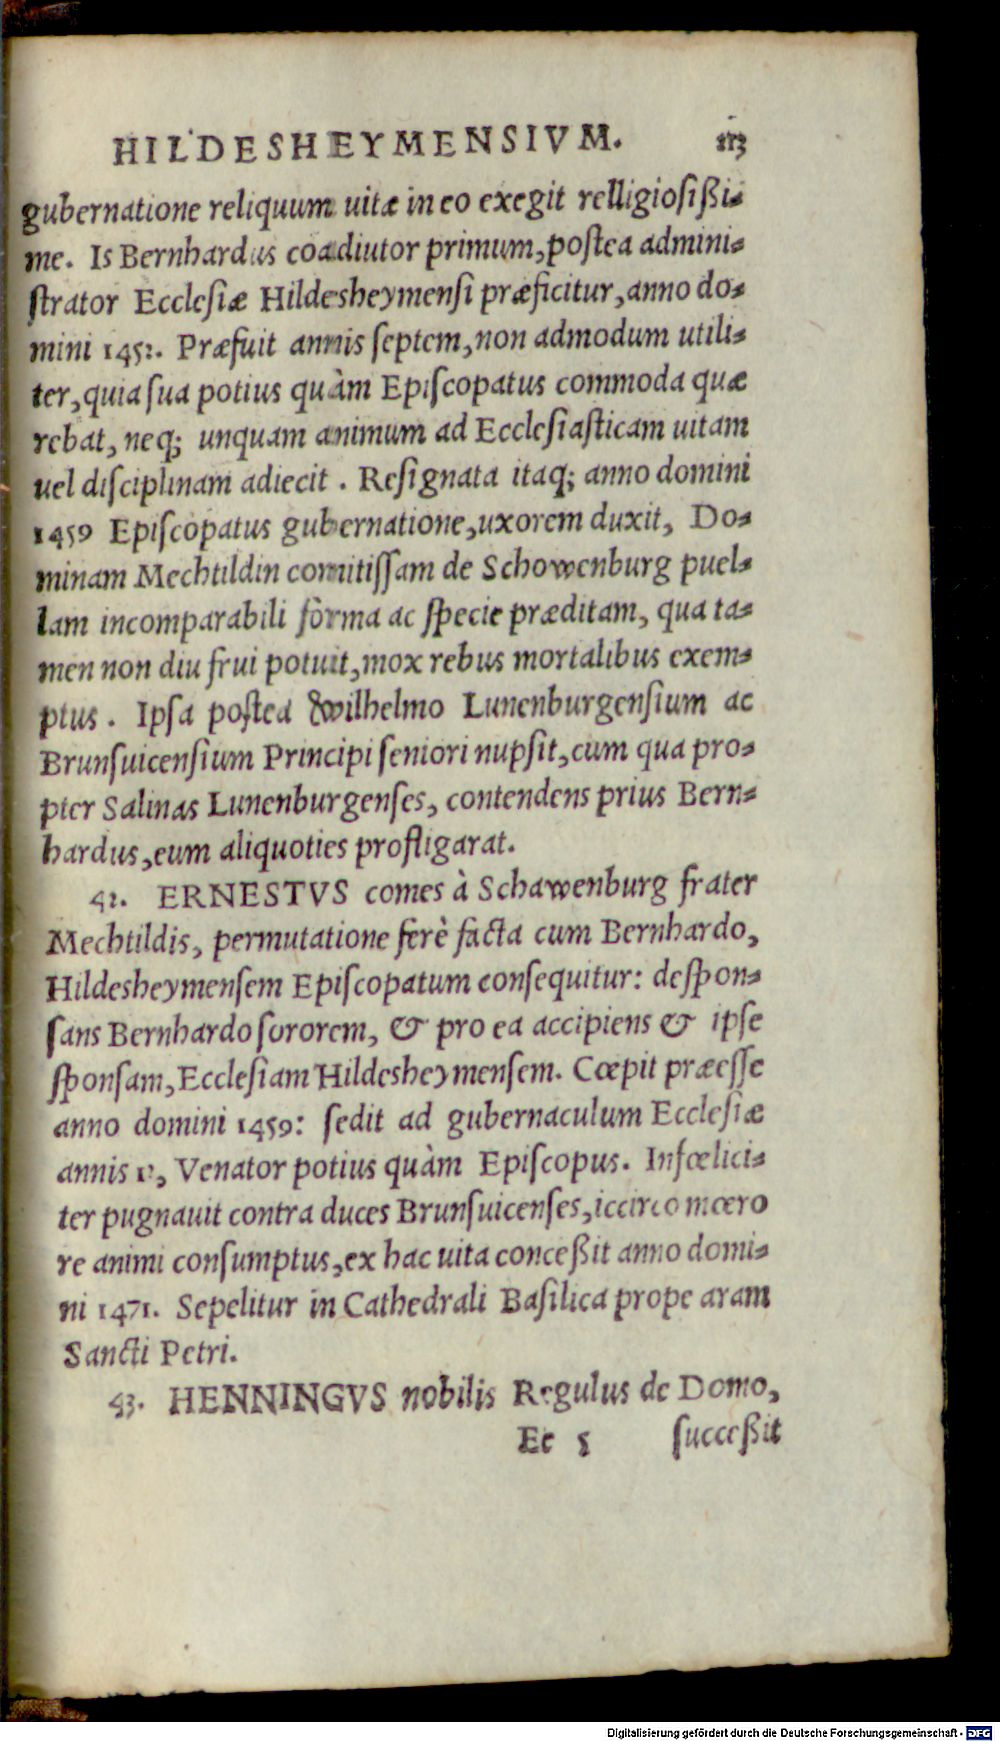 HILDESHEYMENSIVM. 113
gubernatione reliquum uitæ in eo exegit relligiosißi-
me. Is Bernhardus coadiutor primum, postea admini-
ſtrator Eccleſiæ Hildesheymenſi præficitur, anno do-
mini 1452. Præfuit annis ſeptem, non admodum utili-
ter, quia ſua potius quàm Epiſcopatus commoda quæ
rebat, neq; unquam animum ad Eccleſiaſticam uitam
uel diſciplinam adiecit. Reſignata itaq; anno domini
1459 Epiſcopatus gubernatione, uxorem duxit, Do-
minam Mechtildin comitiſſam de Schowenburg puel-
lam incomparabili forma ac ſpecie præditam, qua ta-
men non diu frui potuit, mox rebus mortalibus exem-
ptus. Ipſa poſtea Wilhelmo Lunenburgenſium ac
Brunſuicenſium Principi ſeniori nupſit, cum qua pro-
pter Salinas Lunenburgenſes, contendens prius Bern-
hardus, eum aliquoties profligarat.
42. ERNESTVS comes à Schawenburg frater
Mechtildis, permutatione ferè facta cum Bernhardo,
Hildesheymenſem Epiſcopatum conſequitur: deſpon-
ſans Bernhardo ſororem, & pro ea accipiens & ipſe
ſponſam, Eccleſiam Hildesheymenſem. Cœpit præeſſe
anno domini 1459: ſedit ad gubernaculum Eccleſiæ
annis Venator potius quàm Epiſcopus. Infœlici-
ter pugnauit contra duces Brunſuicenſes, iccirco mœro
re animi conſumptus, ex hac uita conceßit anno domi-
ni 1471. Sepelitur in Cathedrali Baſilica prope aram
Sancti Petri.
43. HENNINGVS nobilis Regulus de Domo,
Ee 5 ſucceßit
Digitalisierung gefördert durch die Deutsche Forschungsgemeinschaft - DFG